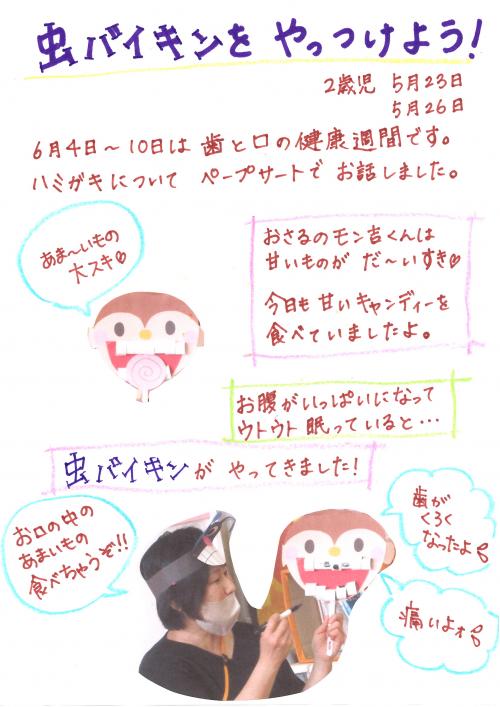 虫バイキンを やっつけよう!
2歳児 5月23日
5月26日
6月4日～10日は 歯と口の健康週間です。
ハミガキについて ペープサートで お話しました。
あま～いもの
大スキ♡
おさるのモン吉くんは
甘いものが だ～いすき♡
今日も 甘いキャンディーを
食べていましたよ。
お腹がいっぱいになって
ウトウト 眠っていると…
虫バイキンが やってきました!
お口の中の
あまいもの
食べちゃうぞ!!
歯が
くろく
なったよ
痛いよォ